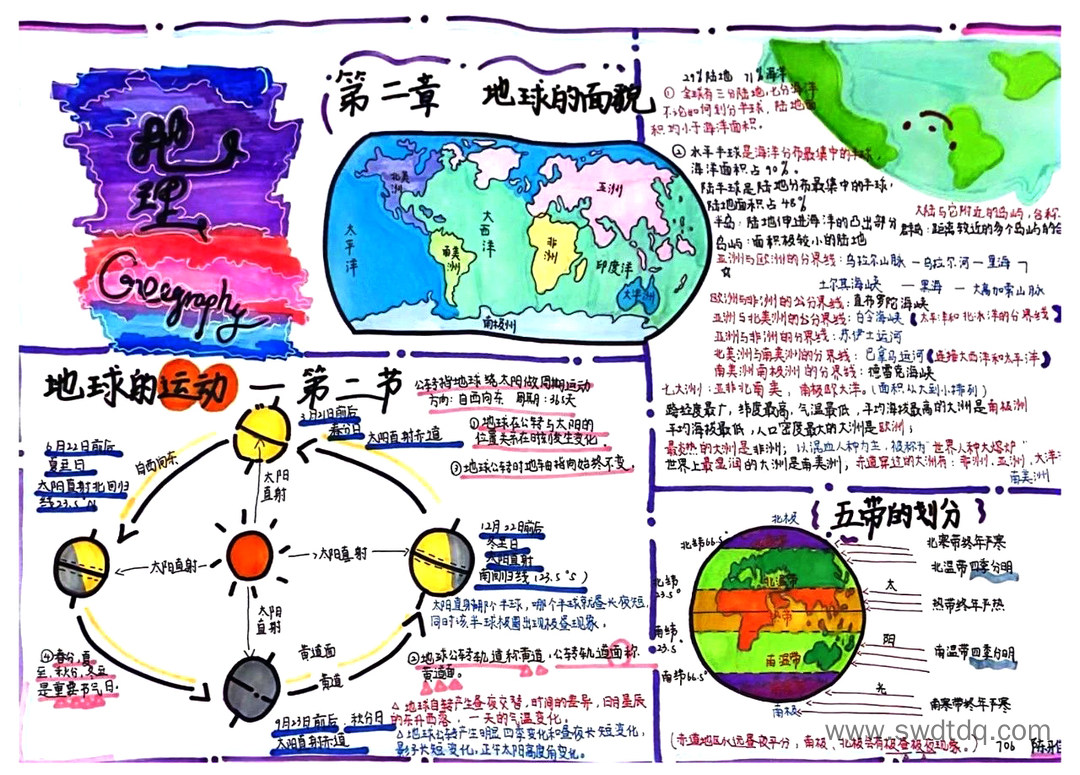 地理
Geography
第二章 地球的面貌
北美洲
亚洲
太平洋
大西洋
南美洲
非洲
印度洋
大洋洲
南极洲
29%陆地 71%海洋
① 全球有三分陆地,七分海洋
不论如何划分半球,陆地面
积均小于海洋面积。
② 水半球是海洋分布最集中的半球,
海洋面积占90%。
陆半球是陆地分布最集中的半球,
陆地面积占48%
大陆与它附近的岛屿,合称
半岛:陆地伸进海洋的凸出部分
群岛:距离较近的多个岛屿的合
岛屿:面积极较小的陆地
亚洲与欧洲的分界线:乌拉尔山脉—乌拉尔河—里海
土耳其海峡—黑海—大高加索山脉
欧洲与非洲的分界线:直布罗陀海峡
亚洲与北美洲的分界线:白令海峡【太平洋和北冰洋的分界线】
亚洲与非洲的分界线:苏伊士运河
北美洲与南美洲的分界线:巴拿马运河(连接大西洋和太平洋)
南美洲南极洲的分界线:德雷克海峡
七大洲:亚非北南美,南极欧大洋。(面积从大到小排列)
跨经度最广,纬度最高,气温最低,平均海拔最高的大洲是南极洲
平均海拔最低,人口密度最大的大洲是欧洲;
最炎热的大洲是非洲;以混血人种为主,被称为"世界人种大熔炉"
世界上最湿润的大洲是南美洲;赤道穿过的大洲有:非洲、亚洲、大洋
南美洲
地球的运动—第二节
公转指地球绕太阳做周期运动
方向:自西向东 周期:365天
①地球在公转与太阳的
位置关系在时刻发生变化
③地球公转时地轴指向始终不变。
3月21日前后
春分日
太阳直射赤道
6月22日前后
夏至日
太阳直射北回归
线23.5°N
自西向东
太阳
直射
太阳直射
太阳直射
太阳
直射
12月22日前后
冬至日
太阳直射
南回归线(23.5°S)
太阳直射那个半球,哪个半球就昼长夜短,
同时该半球极圈出现极昼现象。
④春分,夏
至,秋分,冬至
是重要节气日.
黄道面
黄道
②地球公转轨道称黄道,公转轨道面称
黄道面。
9月23日前后,秋分日
太阳直射赤道
△地球自转产生昼夜交替,时间的差异,日月星辰
的东升西落,一天的气温变化。
△地球公转产生明显四季变化和昼夜长短变化,
影子长短变化,正午太阳高度角变化。
{五带的划分}
北极
北纬66.5°
北寒带终年严寒
北温带四季分明
北纬
23.5°
北温带
太
热带
热带终年炎热
南纬
23.5°
阳
南温带
南温带四季分明
南纬66.5°
光
南寒带终年严寒
南极
www.swdtdq.com
(赤道地区永远昼夜平分,南极、北极会有极昼极夜现象。)
706